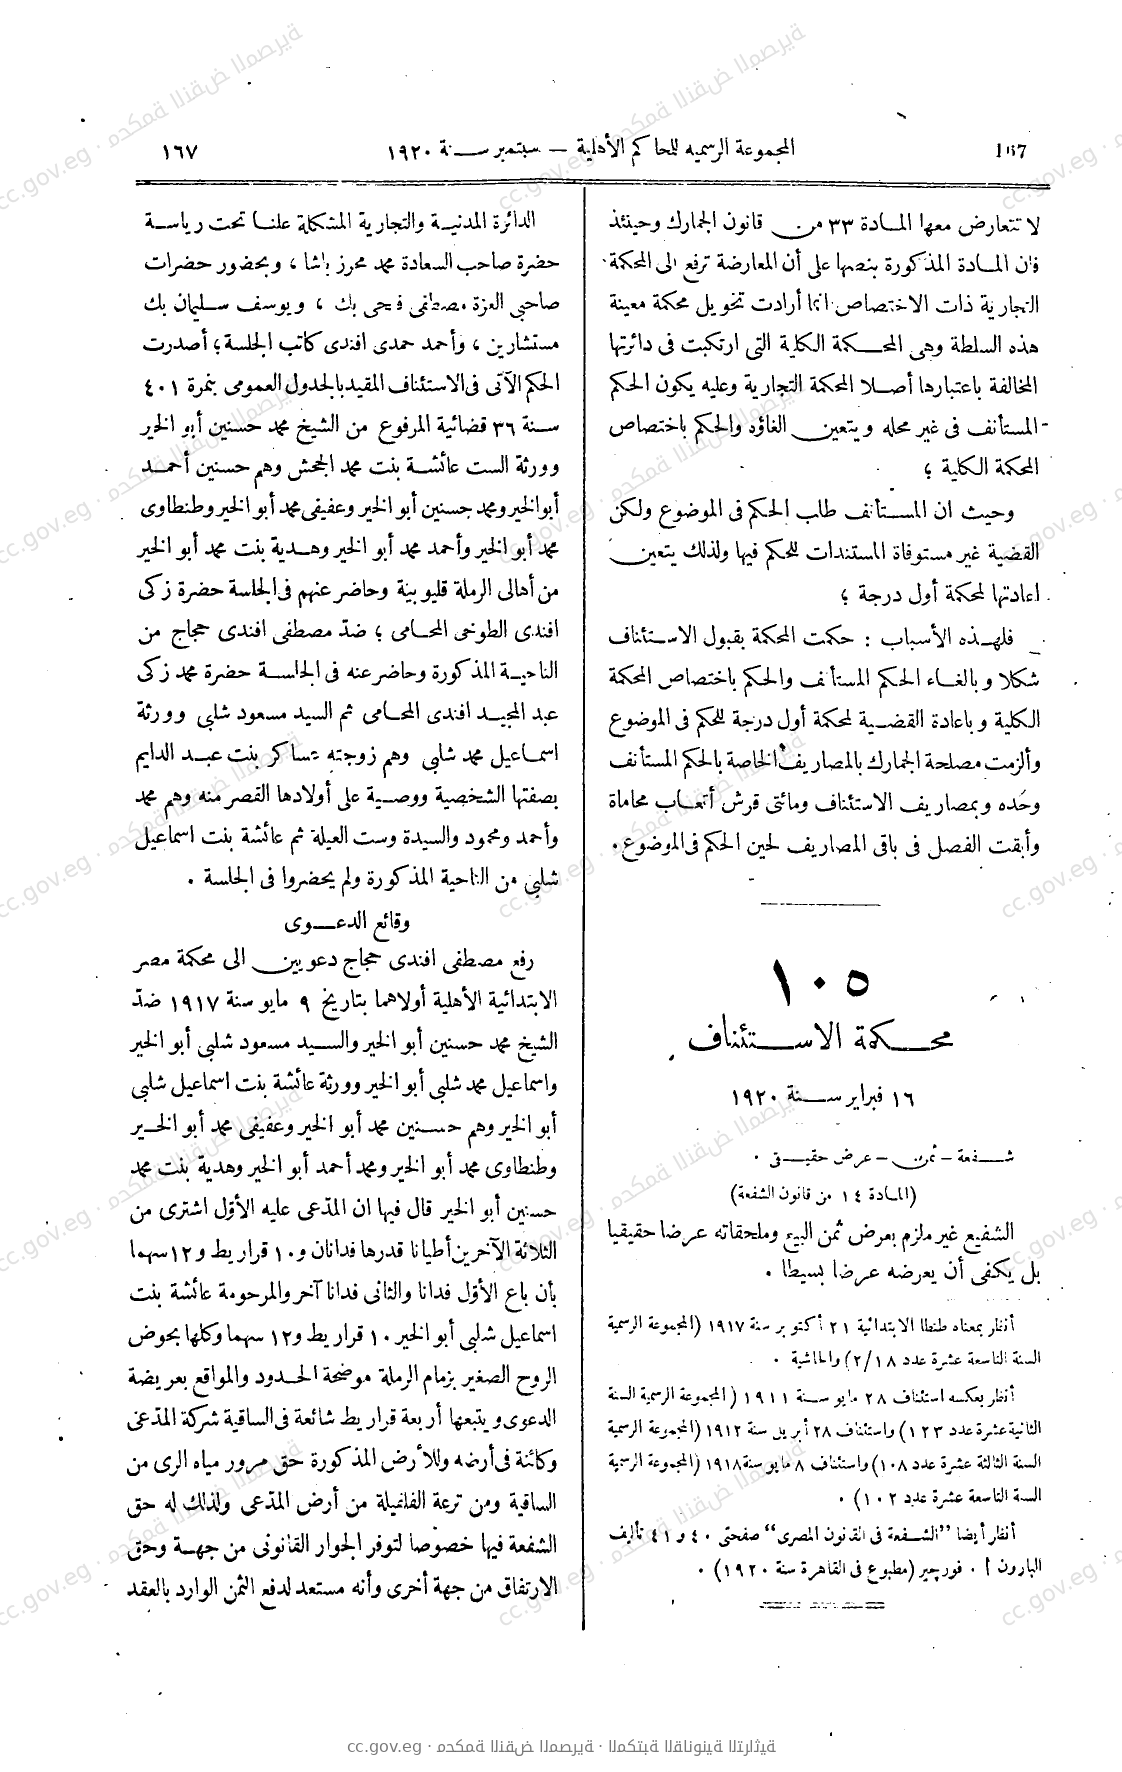 167
المجموعة الرسمية للمحاكم الأهلية – سبتمبر سنة ١٩٢٠
١٦٧
لا تتعارض معها المادة ٣٣ من قانون الجمارك وحينئذ
فان المادة المذكورة بنصها على أن المعارضة ترفع الى المحكمة
التجارية ذات الاختصاص انما أرادت تخويل محكمة معينة
هذه السلطة وهى المحكمة الكلية التى ارتكبت فى دائرتها
المخالفة باعتبارها أصلا المحكمة التجارية وعليه يكون الحكم
المستأنف فى غير محله ويتعين الغاؤه والحكم باختصاص
المحكمة الكلية ؛
وحيث ان المستأنف طلب الحكم فى الموضوع ولكن
القضية غير مستوفاة المستندات للحكم فيها ولذلك يتعين
اعادتها لمحكمة أول درجة ؛
فلهذه الأسباب : حكمت المحكمة بقبول الاستئناف
شكلا وبالغاء الحكم المستأنف والحكم باختصاص المحكمة
الكلية وباعادة القضية لمحكمة أول درجة للحكم فى الموضوع
وألزمت مصلحة الجمارك بالمصاريف الخاصة بالحكم المستأنف
وحده وبمصاريف الاستئناف ومائتى قرش أتعاب محاماة
وأبقت الفصل فى باقى المصاريف لحين الحكم فى الموضوع.
١٠٥
محكمة الاستئناف
١٦ فبراير سنة ١٩٢٠
شفعة – ثمن – عرض حقيقى .
(المادة ١٤ من قانون الشفعة)
الشفيع غير ملزم بعرض ثمن البيع وملحقاته عرضا حقيقيا
بل يكفى أن يعرضه عرضا بسيطا .
أنظر بمعناه طنطا الابتدائية ٢١ أكتوبر سنة ١٩١٧ (المجموعة الرسمية
السنة التاسعة عشرة عدد ٢/١٨) والحاشية .
أنظر بعكسه استئناف ٢٨ مايو سنة ١٩١١ (المجموعة الرسمية السنة
الثانية عشرة عدد ١٢٣) واستئناف ٢٨ أبريل سنة ١٩١٢ (المجموعة الرسمية
السنة الثالثة عشرة عدد ١٠٨) واستئناف ٨ مايو سنة ١٩١٨ (المجموعة الرسمية
السنة التاسعة عشرة عدد ١٠٢) .
أنظر أيضا "الشفعة فى القانون المصرى" صفحتى ٤٠ و ٤١ تأليف
البارون أ . فورجير (مطبوع فى القاهرة سنة ١٩٢٠) .
الدائرة المدنية والتجارية المشكلة علنا تحت رياسة
حضرة صاحب السعادة محمد محرز باشا ، وبحضور حضرات
صاحبى العزة مصطفى فتحى بك ، ويوسف سليمان بك
مستشارين ، وأحمد حمدى افندى كاتب الجلسة ؛ أصدرت
الحكم الآتى فى الاستئناف المقيد بالجدول العمومى بنمرة ٤٠١
سنة ٣٦ قضائية المرفوع من الشيخ محمد حسنين أبو الخير
وورثة الست عائشة بنت محمد الجحش وهم حسنين أحمد
أبو الخير ومحمد حسنين أبو الخير وعفيفى محمد أبو الخير وطنطاوى
محمد أبو الخير وأحمد محمد أبو الخير وهدية بنت محمد أبو الخير
من أهالى الرملة قليوبية وحاضر عنهم فى الجلسة حضرة زكى
افندى الطوخى المحامى ؛ ضد مصطفى افندى حجاج من
الناحية المذكورة وحاضر عنه فى الجلسة حضرة محمد زكى
عبد المجيد افندى المحامى ثم السيد مسعود شلبى وورثة
اسماعيل محمد شلبى وهم زوجته عساكر بنت عبد الدايم
بصفتها الشخصية ووصية على أولادها القصر منه وهم محمد
وأحمد ومحمود والسيدة وست العيلة ثم عائشة بنت اسماعيل
شلبى من الناحية المذكورة ولم يحضروا فى الجلسة .
وقائع الدعوى
رفع مصطفى افندى حجاج دعويين الى محكمة مصر
الابتدائية الأهلية أولاهما بتاريخ ٩ مايو سنة ١٩١٧ ضد
الشيخ محمد حسنين أبو الخير والسيد مسعود شلبى أبو الخير
واسماعيل محمد شلبى أبو الخير وورثة عائشة بنت اسماعيل شلبى
أبو الخير وهم حسنين محمد أبو الخير وعفيفى محمد أبو الخير
وطنطاوى محمد أبو الخير ومحمد أحمد أبو الخير وهدية بنت محمد
حسنين أبو الخير قال فيها ان المدعى عليه الأول اشترى من
الثلاثة الآخرين أطيانا قدرها فدانان و١٠ قراريط و١٢ سهما
بأن باع الأول فدانا والثانى فدانا آخر والمرحومة عائشة بنت
اسماعيل شلبى أبو الخير ١٠ قراريط و١٢ سهما وكلها بحوض
الروح الصغير بزمام الرملة موضحة الحدود والمواقع بعريضة
الدعوى ويتبعها أربعة قراريط شائعة فى الساقية شركة المدعى
وكائنة فى أرضه وللأرض المذكورة حق مرور مياه الرى من
الساقية ومن ترعة الفلفيلة من أرض المدعى ولذلك له حق
الشفعة فيها خصوصا لتوفر الجوار القانونى من جهة وحق
الارتفاق من جهة أخرى وأنه مستعد لدفع الثمن الوارد بالعقد
cc.gov.eg · محكمة النقض المصرية · المكتبة القانونية التراثية